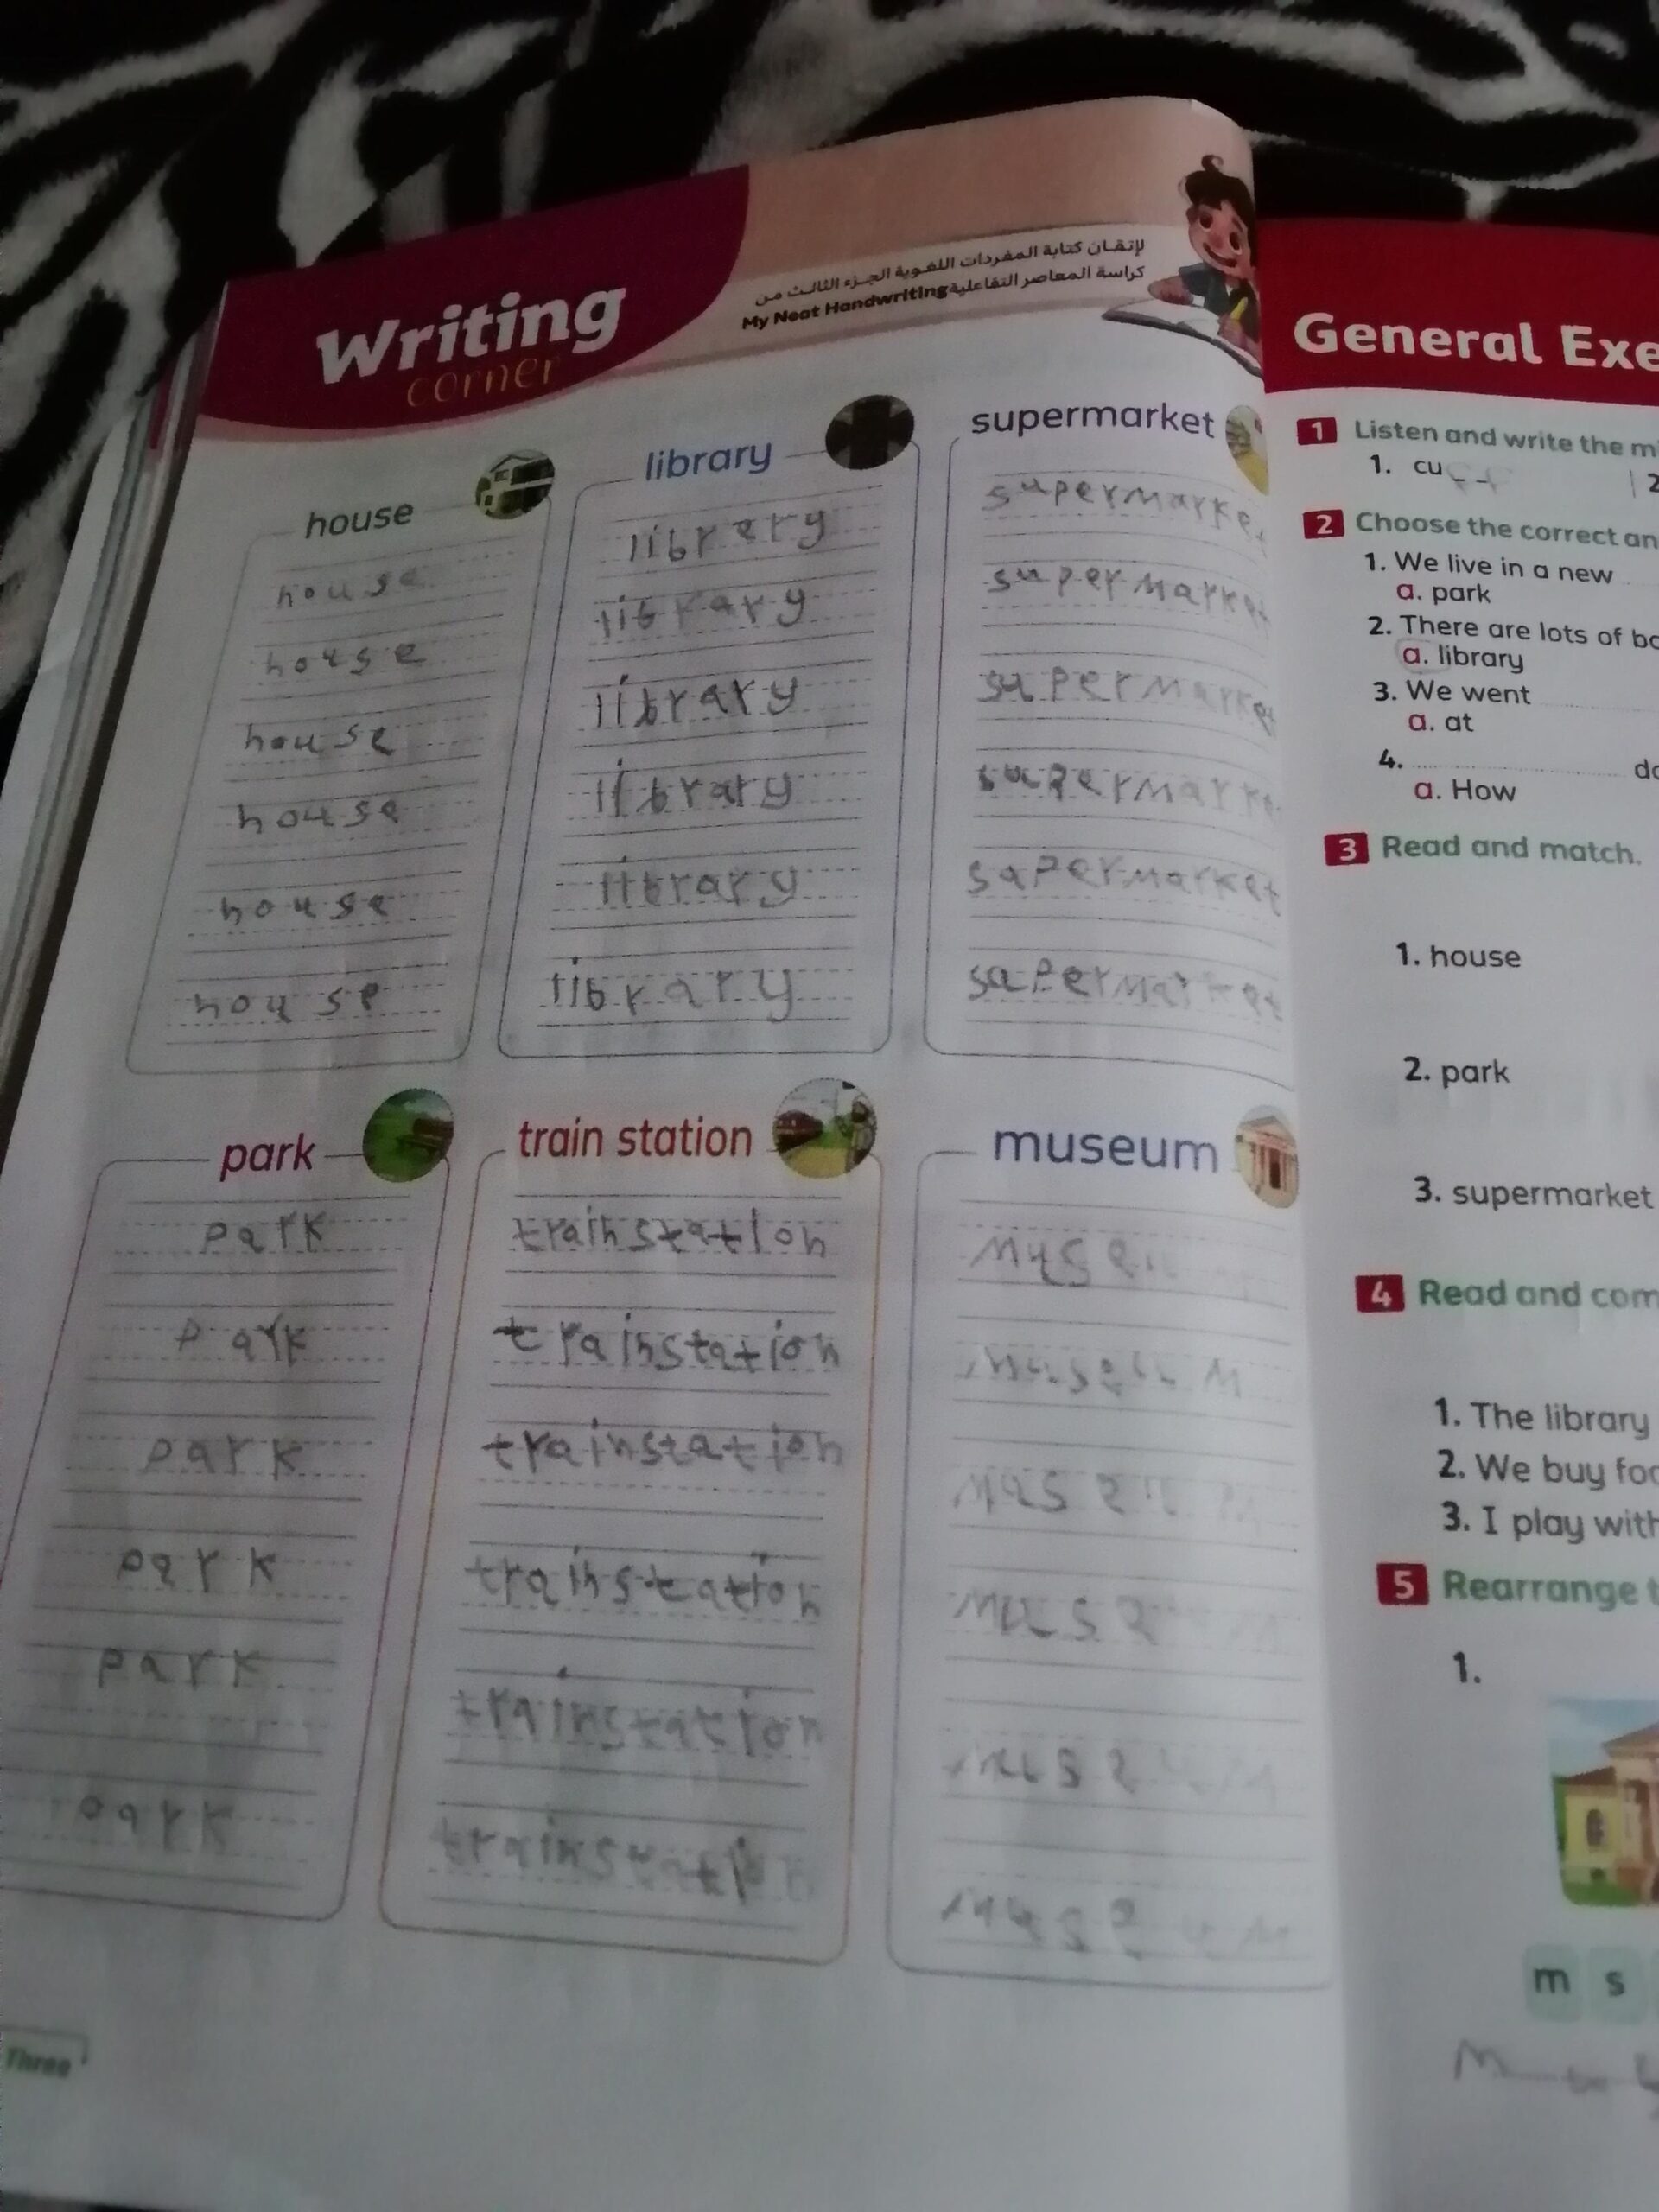 Writing
corner
لإتقـان كتابة المفردات اللغوية الجـزء الثالث من
كراسة المعاصر التفاعلية My Neat Handwriting
house
house
house
house
house
house
house
library
librery
library
library
library
library
library
supermarket
supermarket
supermarket
supermarket
sapermarket
sapermarket
park
park
park
park
park
park
park
train station
trainstation
trainstation
trainstation
trainstation
trainstation
museum
Three
General Exe
1 Listen and write the mi
1. cu
2
2 Choose the correct an
1. We live in a new
a. park
2. There are lots of bo
a. library
3. We went
a. at
4. do
a. How
3 Read and match.
1. house
2. park
3. supermarket
4 Read and com
1. The library
2. We buy foo
3. I play with
5 Rearrange t
1.
m s